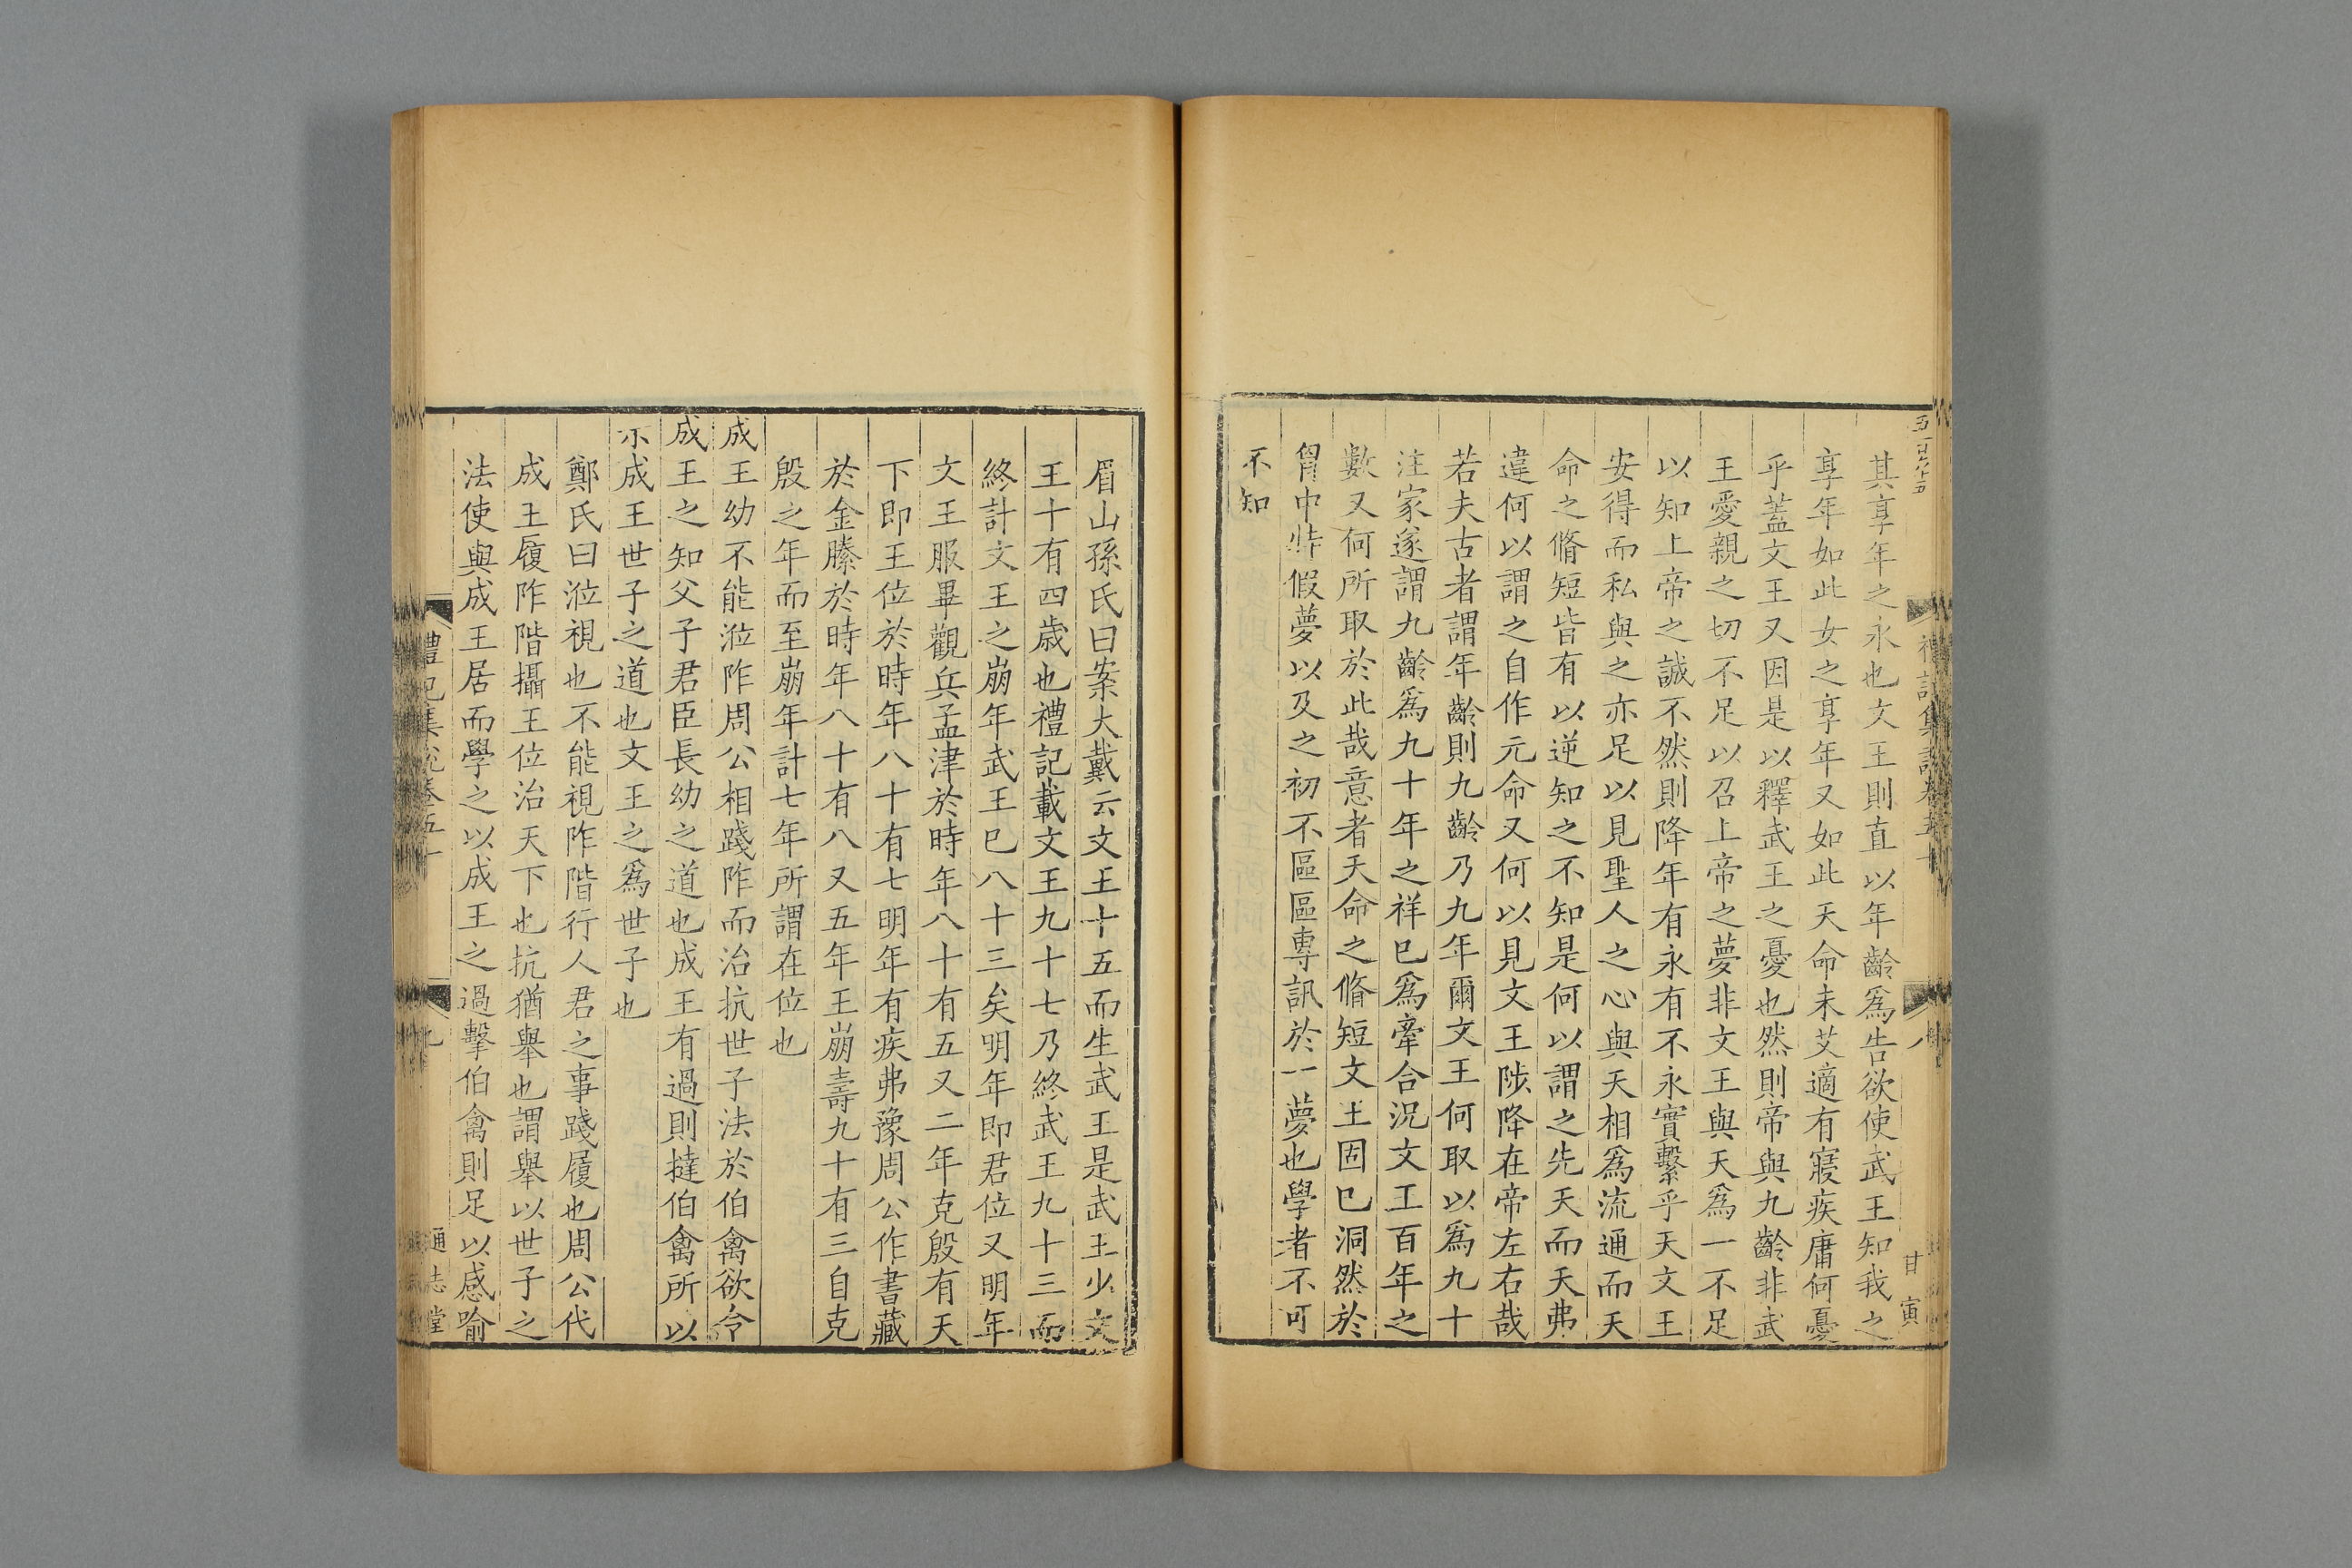 其享年之永也文王則直以年齡爲告欲使武王知我之
享年如此女之享年又如此天命未艾適有寢疾庸何憂
乎蓋文王又因是以釋武王之憂也然則帝與九齡非武
王愛親之切不足以召上帝之夢非文王與天爲一不足
以知上帝之誠不然則降年有永有不永實繫乎天文王
安得而私與之亦足以見聖人之心與天相爲流通而天
命之脩短皆有以逆知之不知是何以謂之先天而天弗
違何以謂之自作元命又何以見文王陟降在帝左右哉
若夫古者謂年齡則九齡乃九年爾文王何取以爲九十
注家遂謂九齡爲九十年之祥已爲牽合況文王百年之
數又何所取於此哉意者天命之脩短文王固已洞然於
胷中特假夢以及之初不區區專訊於一夢也學者不可
不知
眉山孫氏曰案大戴云文王十五而生武王是武王少文
王十有四歲也禮記載文王九十七乃終武王九十三而
終計文王之崩年武王已八十三矣明年即君位又明年
文王服畢觀兵孟津於時年八十有五又二年克殷有天
下即王位於時年八十有七明年有疾弗豫周公作書藏
於金縢於時年八十有八又五年王崩壽九十有三自克
殷之年而至崩年計七年所謂在位也
成王幼不能涖阼周公相踐阼而治抗世子法於伯禽欲令
成王之知父子君臣長幼之道也成王有過則撻伯禽所以
示成王世子之道也文王之爲世子也
鄭氏曰涖視也不能視阼階行人君之事踐履也周公代
成王履阼階攝王位治天下也抗猶舉也謂舉以世子之
法使與成王居而學之以成王之過擊伯禽則足以感喻
禮記集說卷五十
九
通志堂